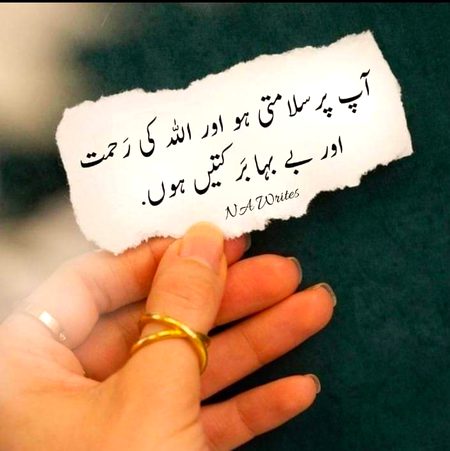 آپ پر سلامتی ہو اور اللہ کی رَحمت
اور بے بہا بَرکتیں ہوں.
NA Writes